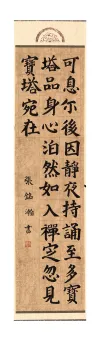 可息尔後因靜夜持誦至多寶
塔品身心泊然如入禪定忽見
寶塔宛在
張銘瀚書